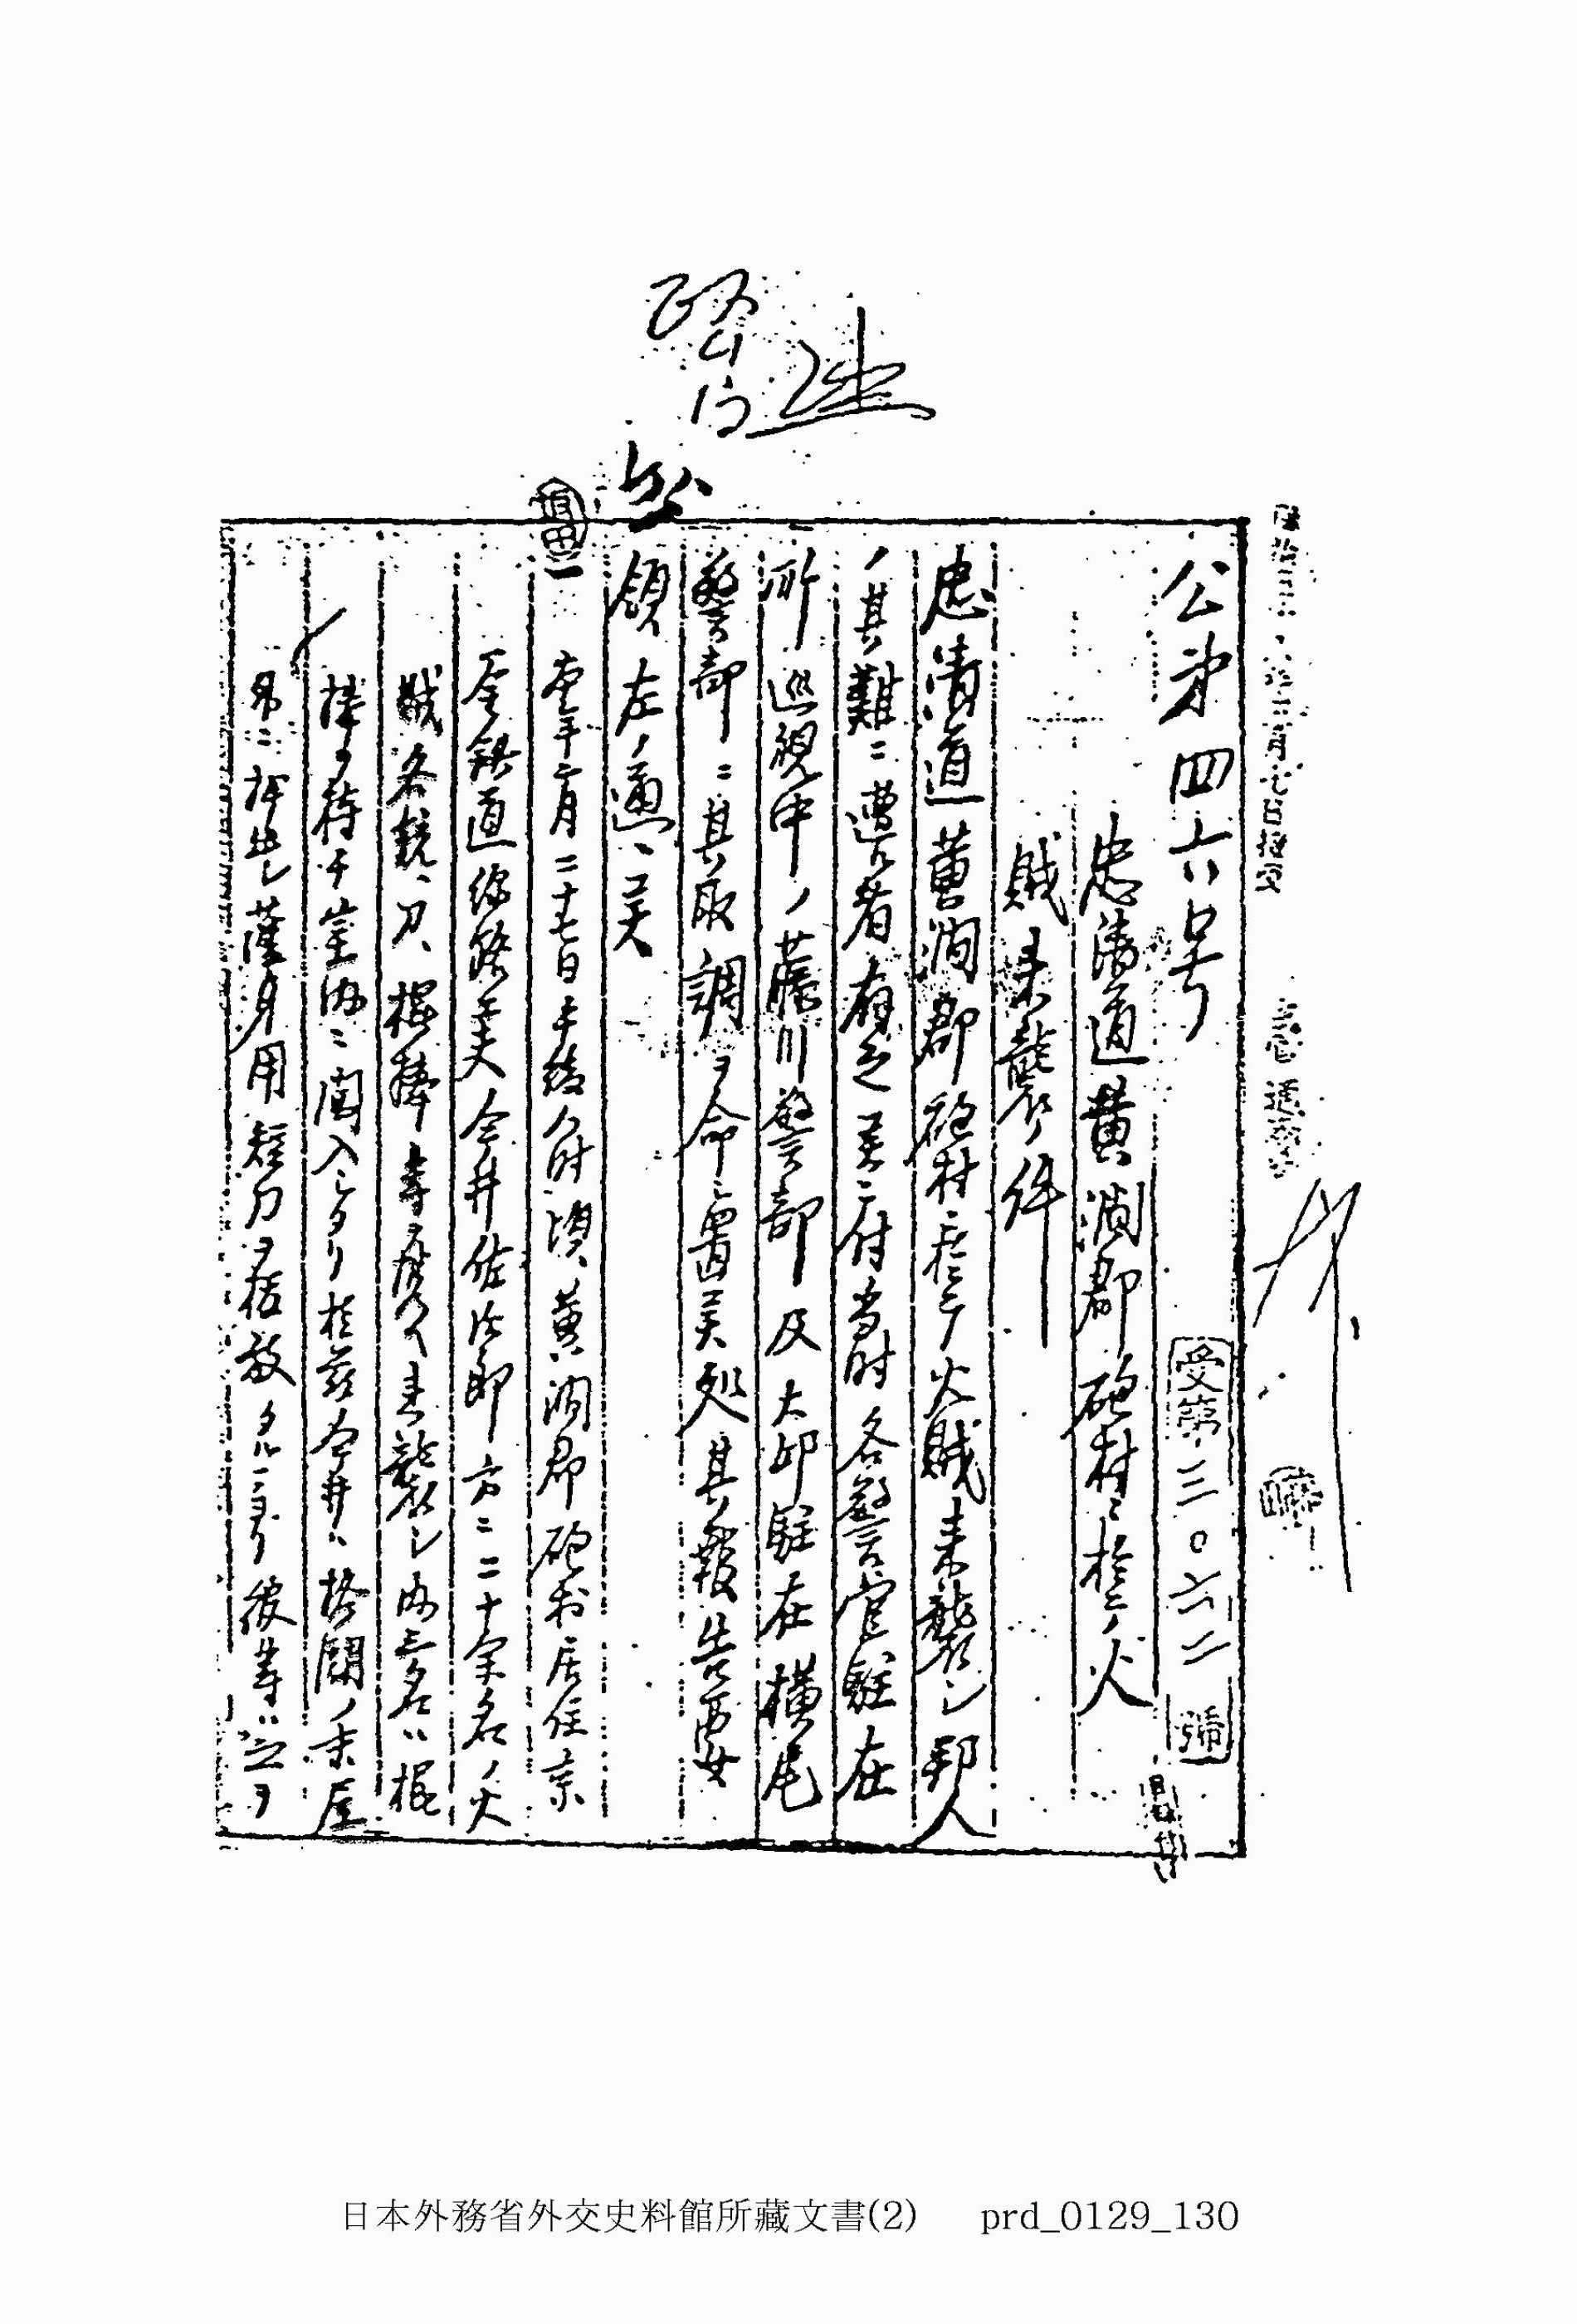 公第四六号
受第三〇六二號
忠清道黄澗郡砲村ニ於テノ火
賊来襲ノ件
忠清道黄澗郡砲村ニ於テ火賊来襲シ邦人
ノ其難ニ遭フ者有之候ニ付当時各警官駐在
所巡視中ノ藤川警部及大邱駐在横尾
警部ニ其取調ヲ命シ置候処其報告要
領左ノ通ニ候
一 本年二月二十七日午後八時頃黄澗郡砲村居住京
釜鉄道線路工夫今井佐次郎方ニ二十余名ノ火
賊各銃、刀、棍棒等ヲ携ヘ来襲シ内三名ハ棍
棒ヲ持チ室内ニ闖入シタリ於茲今井ハ格闘ノ末屋
外ニ押出シ護身用短刀ヲ抜放タルニヨリ彼等ハ之ヲ
日本外務省外交史料館所藏文書(2) prd_0129_130